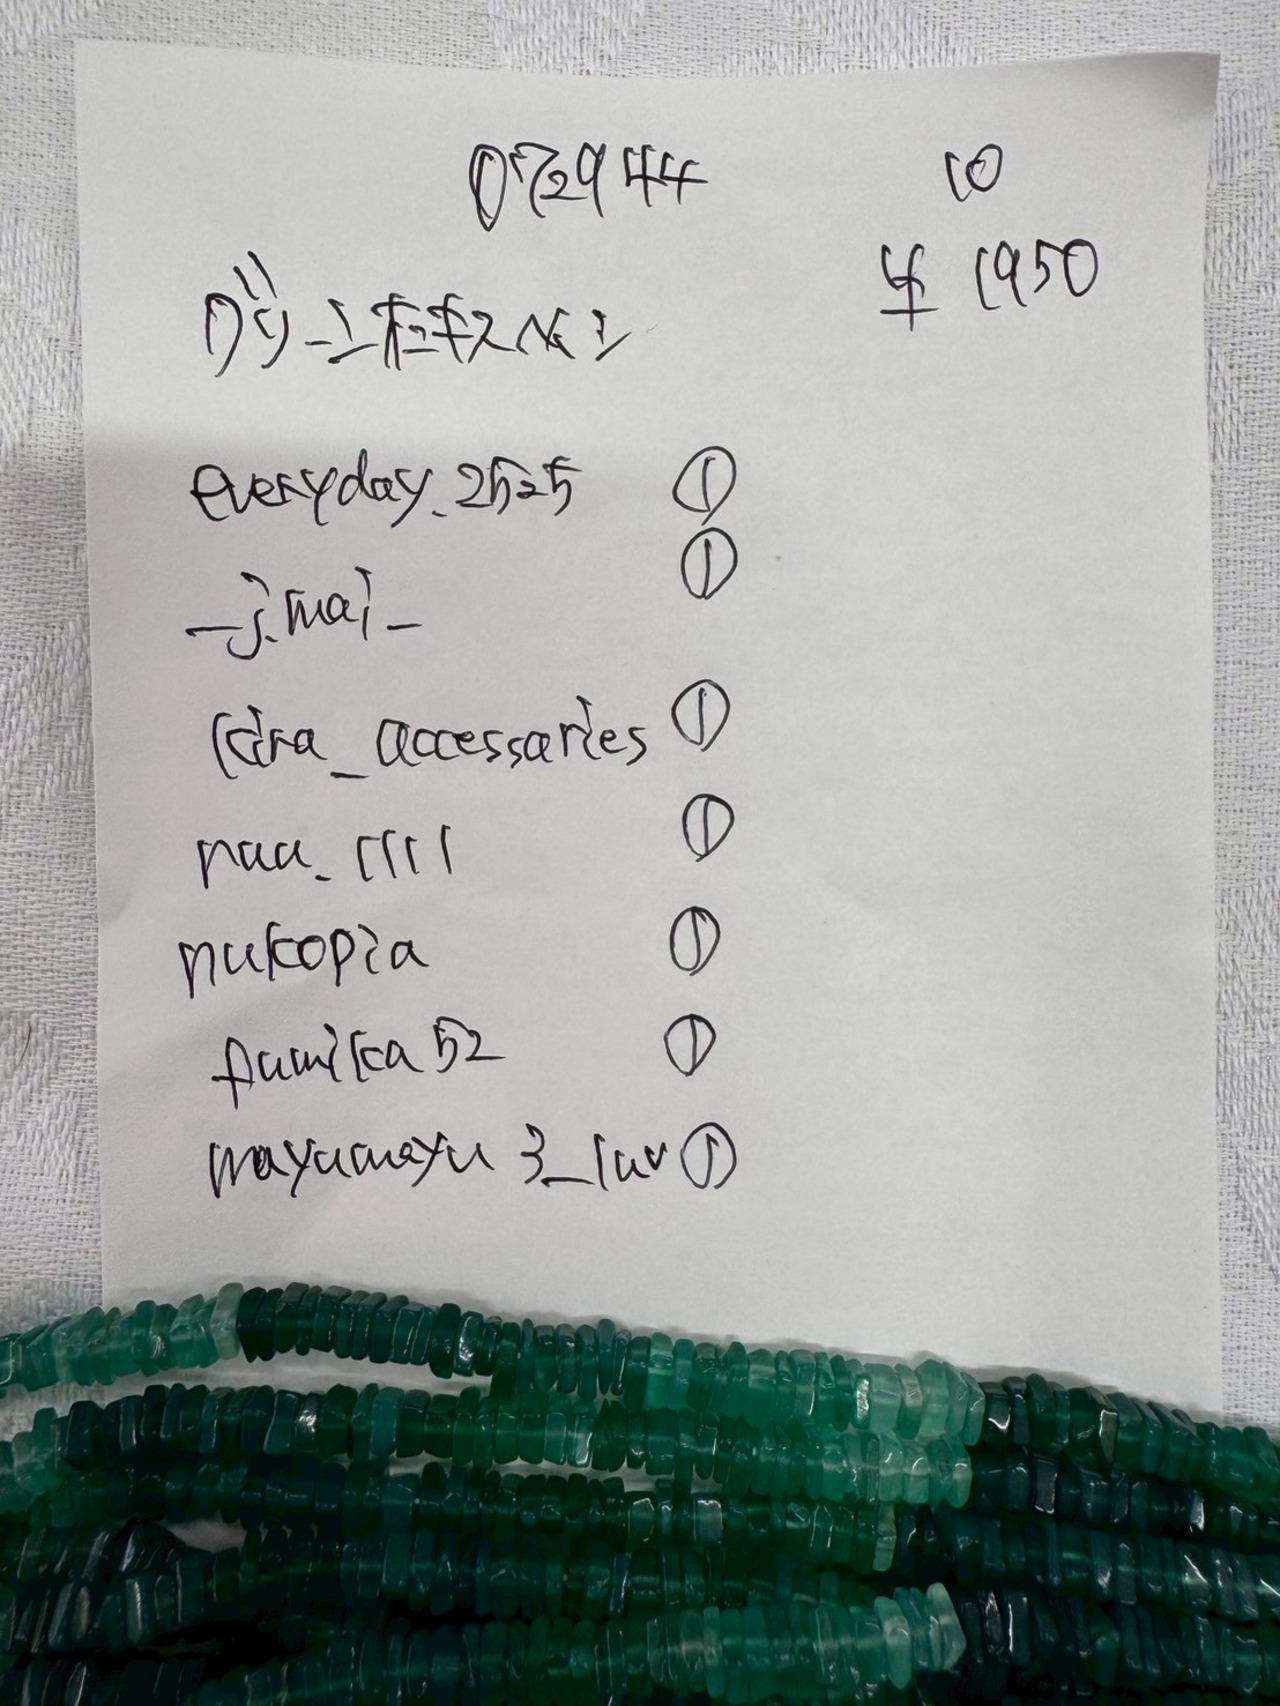 072944 10
¥ 1950
グリーンオニキスヘイシ
everyday.2525 ①
_j.mai_ ①
kira_accessaries ①
naa.1111 ①
nukopia ①
fumika52 ①
mayumayu3_luv ①